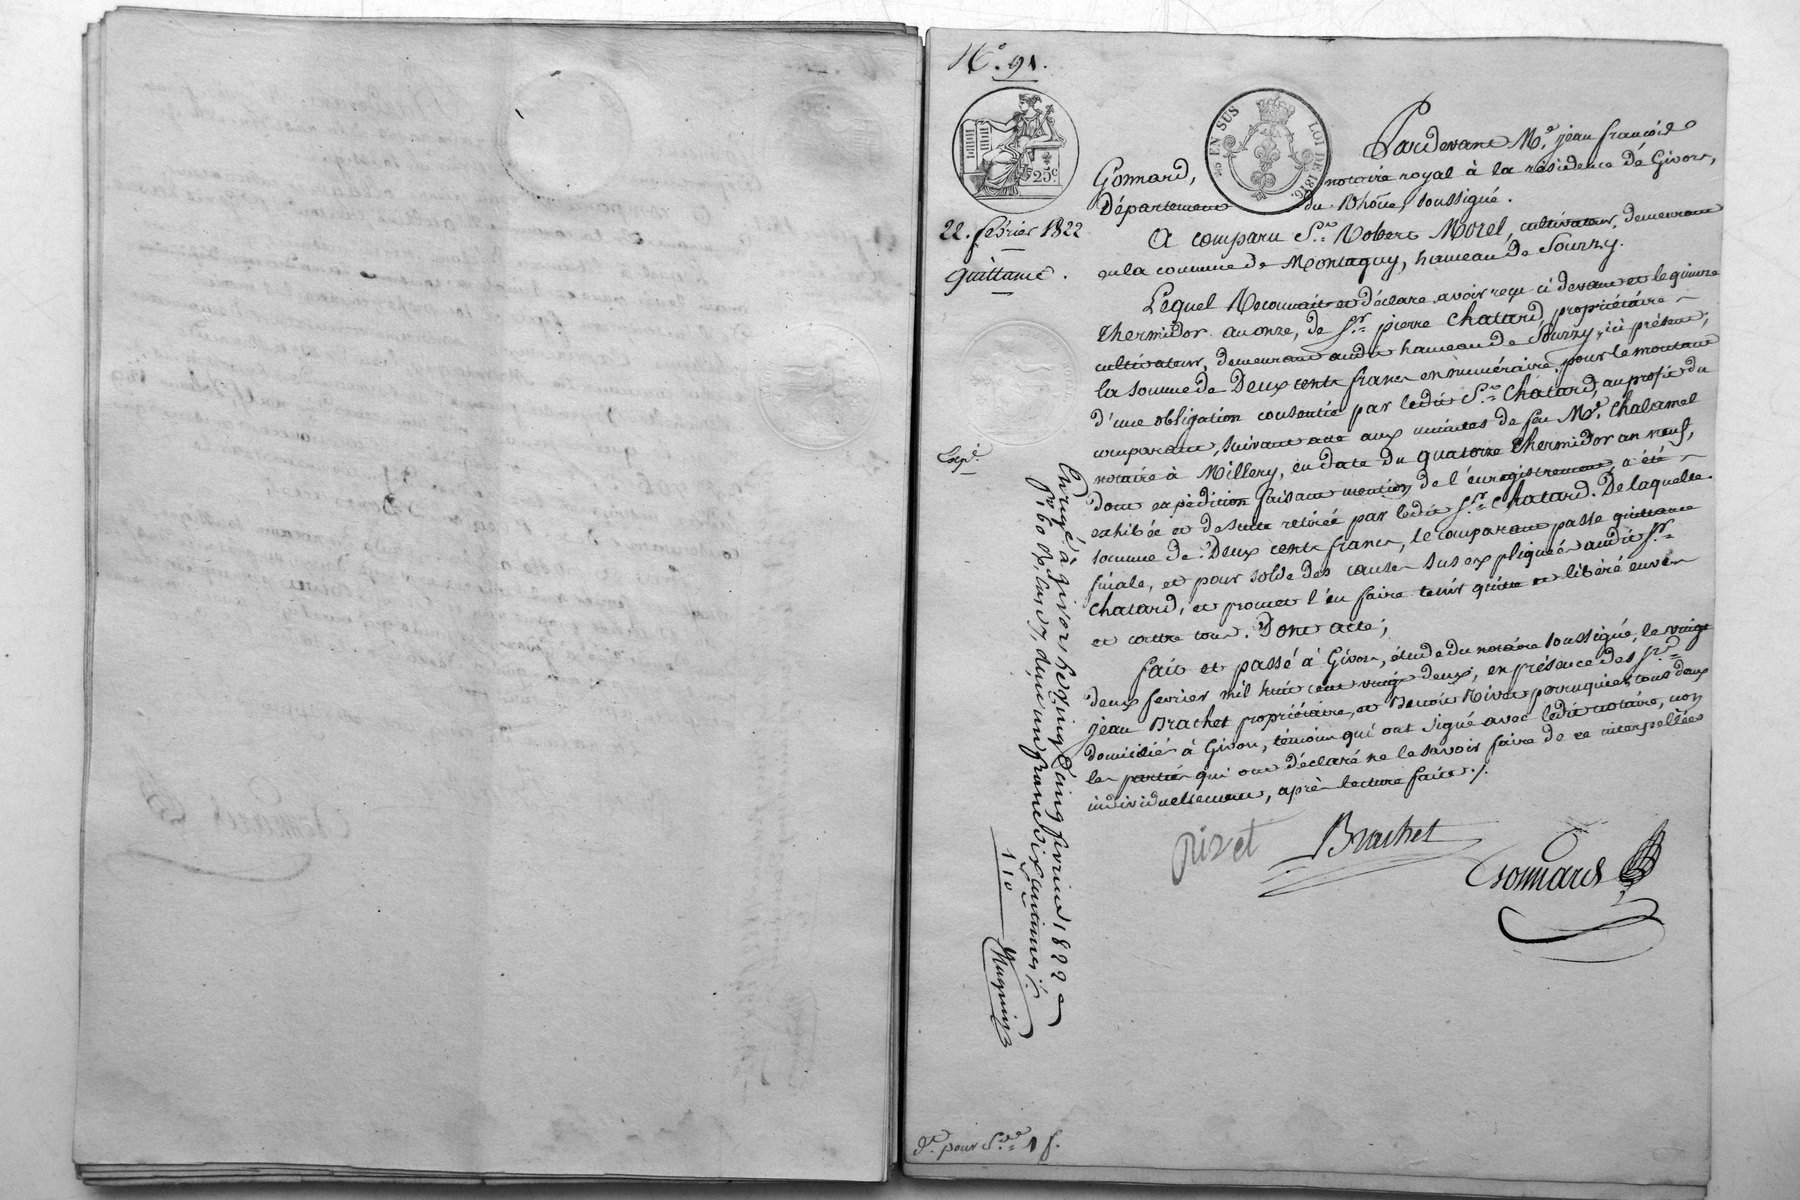 N.° 91.
25 EN SUS
LOI DE 1816.
25c
22. février 1822
quittance.
Expé.
Pardevant M.e jean françois
Gonnard, notaire royal à la résidence de Givors,
Département du Rhône, soussigné.
A comparu S.r Robert Morel, cultivateur, demeurant
en la commune de Montagny, hameau de Sourzy.
Lequel Reconnait et déclare avoir reçu ci devant et le quinze
thermidor an onze, de S.r pierre Chatard, propriétaire
cultivateur, demeurant audit hameau de Sourzy, ici présent,
la somme de Deux cents francs en numéraire, pour le montant
d'une obligation consentie par ledit S.r Chatard, au profit du
comparant, suivant acte aux minutes de feu M.e Chalamel
notaire à Millery, en date du quatorze thermidor an neuf,
dont expédition faisant mention de l'enregistrement, a été
exhibée et de suite retirée par ledit S.r Chatard. De laquelle
somme de Deux cents francs, le comparant passe quittance
finale, et pour solde des causes sus expliquées audit S.r
Chatard, et promet l'en faire tenir quitte et libéré envers
et contre tous. Dont acte;
fait et passé à Givors, étude du notaire soussigné, le vingt
deux fevrier mil huit cent vingt deux, en présence des S.rs
jean Brachet propriétaire, et Benoit Rivat perruquier, tous deux
domiciliés à Givors, témoins qui ont signé avec ledit notaire, non
les parties qui ont déclaré ne le savoir faire de ce interpellées
individuellement, après lecture faite./.
Brachet
Gonnard
Enregé à Givors le vingt cinq fevrier 1822
f.° 60 reçu un franc dix centimes
1 10
d.t pour S.de 1 f.